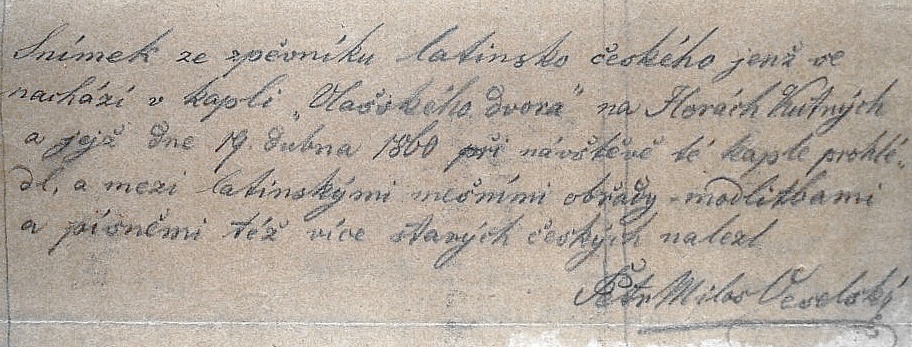 Snímek ze zpěvníku latinsko českého jenž se
nachází v kapli „Vlašského dvora" na Horách Kutných
a jejž dne 19. dubna 1860 při návštěvě té kaple prohlé-
dl, a mezi latinskými mešními obřady - modlitbami
a písněmi též více starých českých nalezl
Petr Miloš Veselský